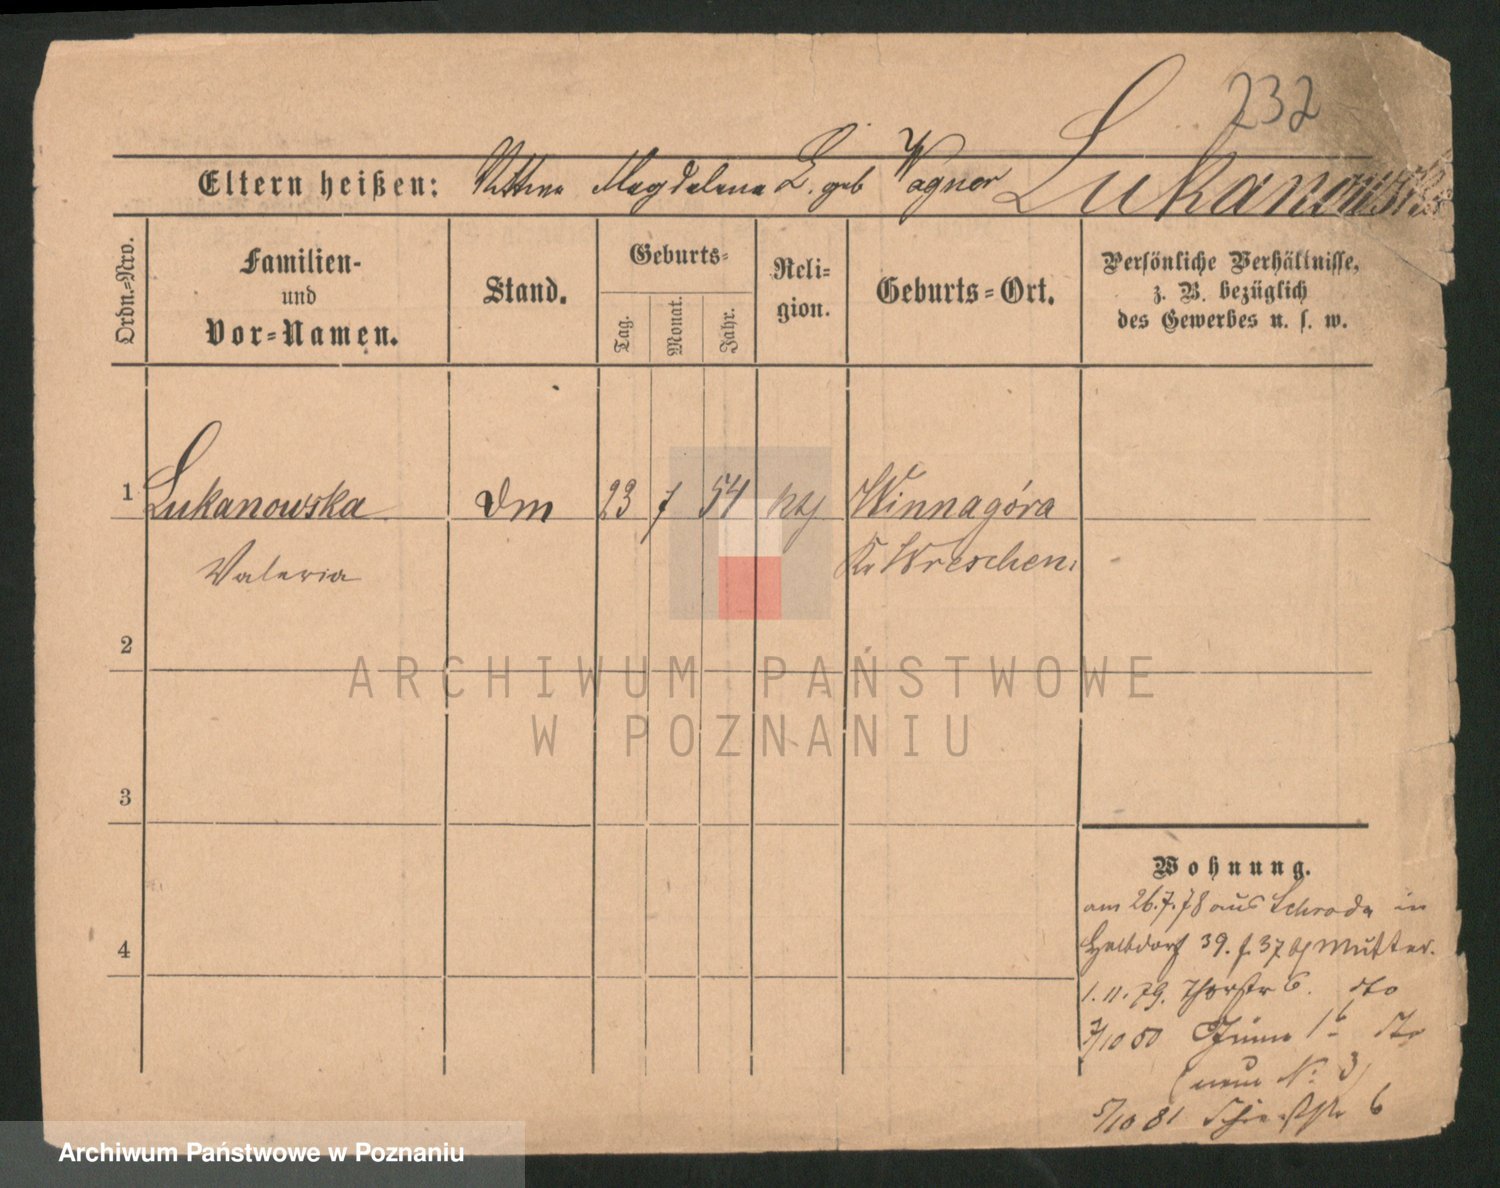 232
Eltern heißen: Mutter Magdalena L. geb Wagner Lukanowska
Ordn.=Nro.
Familien-
und
Vor=Namen.
Stand.
Geburts=
Tag.
Monat.
Jahr.
Reli=
gion.
Geburts=Ort.
Persönliche Verhältnisse,
z. B. bezüglich
des Gewerbes u. s. w.
1 Lukanowska 23 7 54 Winnagóra
Valeria Kr Wreschen
2
3
4
ARCHIWUM PAŃSTWOWE
W POZNANIU
Wohnung.
am 26.7.78 aus Schroda in
Halbdorf 39. Mutter.
1. 11. 79. Thorstr 6. dto
7/10 80
(neue No 3)
5/10 81 6
Archiwum Państwowe w Poznaniu